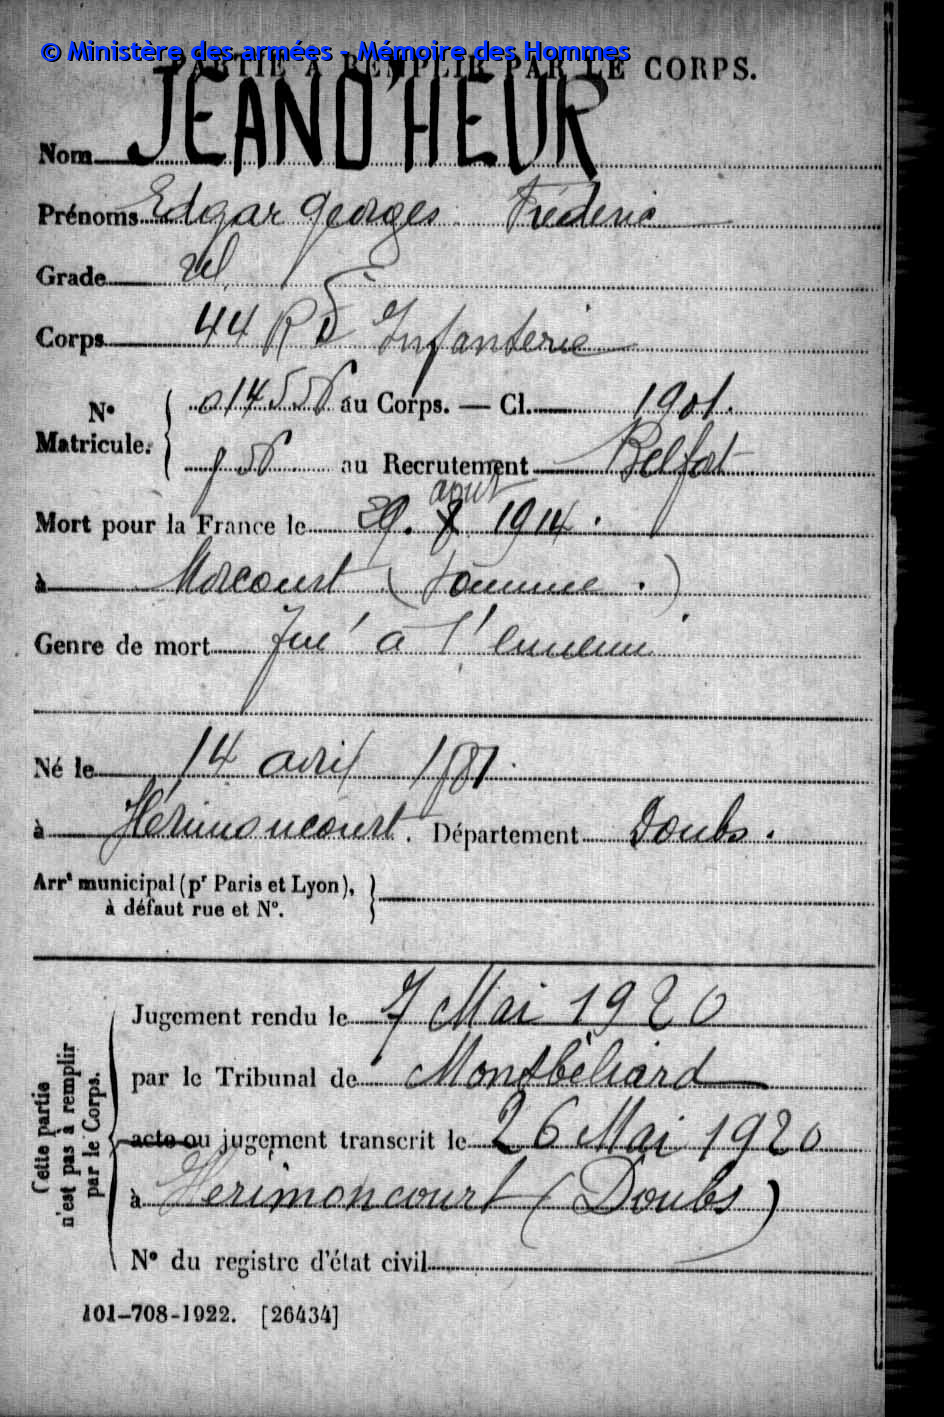 © Ministère des armées - Mémoire des Hommes
PARTIE À REMPLIR PAR LE CORPS.
Nom JEAND'HEUR
Prénoms Edgar Georges Frédéric
Grade
Corps 44 R D Infanterie
N° Matricule. 014556 au Corps. — Cl. 1901.
956 au Recrutement Belfort
août
Mort pour la France le 29. 8 1914.
à Morcourt (Somme.)
Genre de mort Tué à l'ennemi
Né le 14 avril 1881.
à Hérimoncourt. Département Doubs.
Arrt municipal (pr Paris et Lyon),
à défaut rue et N°.
Cette partie n'est pas à remplir par le Corps.
Jugement rendu le 7 Mai 1920
par le Tribunal de Montbéliard
acte ou jugement transcrit le 26 Mai 1920
à Herimoncourt (Doubs)
N° du registre d'état civil
101-708-1922. [26434]